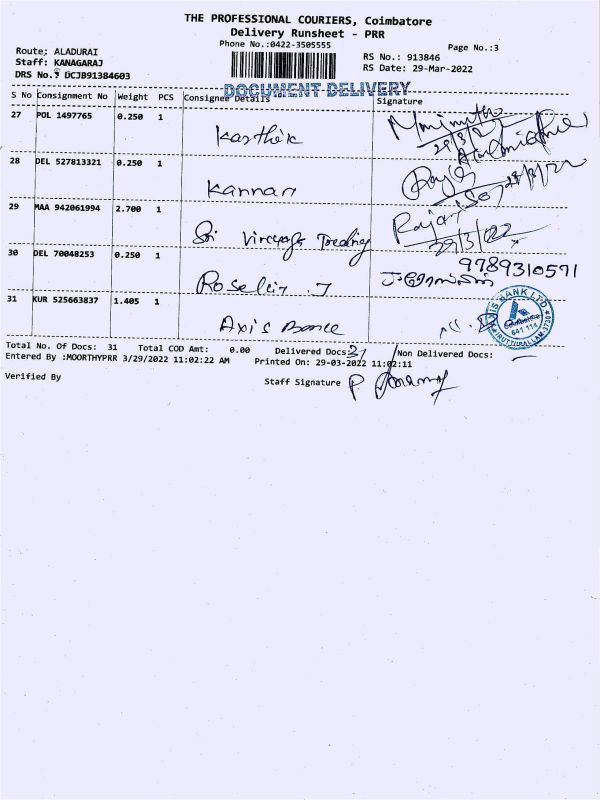 THE PROFESSIONAL COURIERS, Coimbatore
Delivery Runsheet - PRR
Phone No.:0422-3505555
Page No.:3
Route: ALADURAI
Staff: KANAGARAJ
DRS No.: DCJB91384603
RS No.: 913846
RS Date: 29-Mar-2022
DOCUMENT DELIVERY
S No Consignment No Weight PCS Consignee Details Signature
27 POL 1497765 0.250 1
Karthik
28 DEL 527813321 0.250 1
Kannan
29 MAA 942061994 2.700 1
Sri Trading
29/3/22
30 DEL 70048253 0.250 1
9789310571
Roselin J
31 KUR 525663837 1.405 1
Axis
AXIS BANK LTD
641 114
Total No. Of Docs: 31 Total COD Amt: 0.00 Delivered Docs: 31 Non Delivered Docs: —
Entered By :MOORTHYPRR 3/29/2022 11:02:22 AM Printed On: 29-03-2022 11:02:11
Verified By
Staff Signature